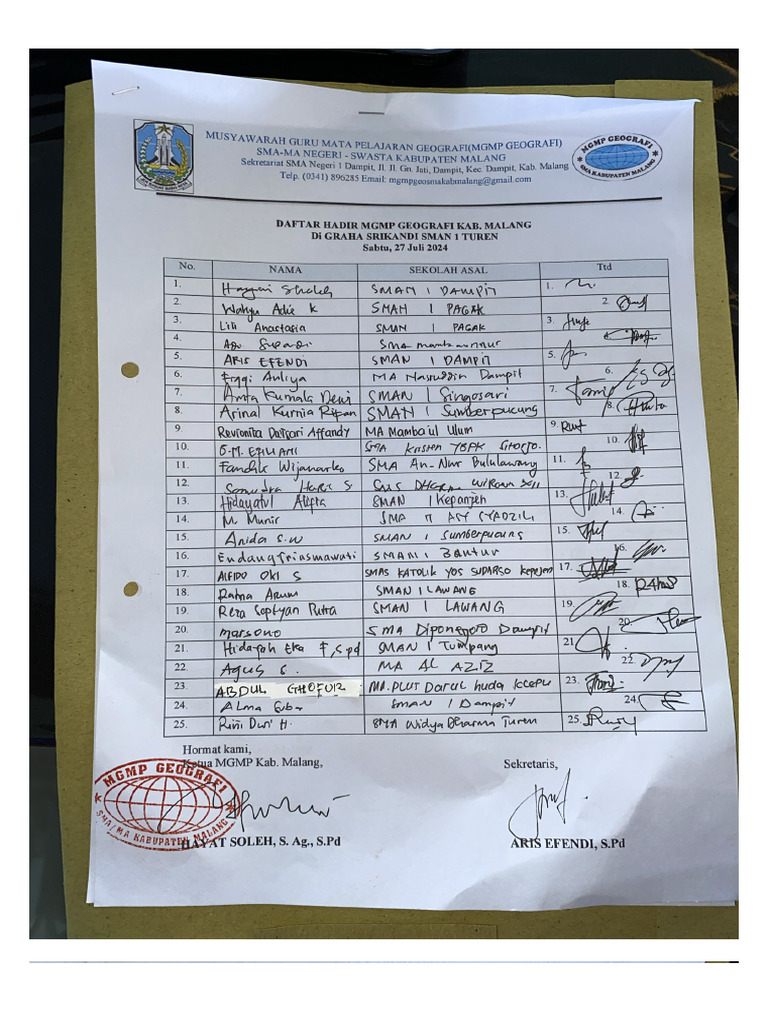 MUSYAWARAH GURU MATA PELAJARAN GEOGRAFI(MGMP GEOGRAFI)
SMA-MA NEGERI - SWASTA KABUPATEN MALANG
Sekretariat SMA Negeri 1 Dampit, Jl. Jl. Gn. Jati, Dampit, Kec. Dampit, Kab. Malang
Telp. (0341) 896285 Email: mgmpgeosmakabmalang@gmail.com
MGMP GEOGRAFI
SMA KABUPATEN MALANG
DAFTAR HADIR MGMP GEOGRAFI KAB. MALANG
Di GRAHA SRIKANDI SMAN 1 TUREN
Sabtu, 27 Juli 2024
No. NAMA SEKOLAH ASAL Ttd
1. SMAN 1 DAMPIT 1.
2. Wahyu Adie K SMAN 1 PAGAK 2.
3. Lili Anastasia SMAN 1 PAGAK 3.
4. 4.
5. ARIS EFENDI SMAN 1 DAMPIT 5.
6. Auliya MA Nasruddin Dampit 6.
7. Anita Kumala Dewi SMAN 1 Singosari 7.
8. Arinal Kurnia SMAN 1 Sumberpucung 8.
9. Affandy MA Mamba'ul Ulum 9.
10. 10.
11. Fandik Wijanarko SMA An-Nur Bululawang 11.
12. 12.
13. Hidayatul SMAN 1 Kepanjen 13.
14. M. Munir SMA 14.
15. Anida S.W SMAN 1 Sumberpucung 15.
16. Endang Triasmawati SMAN 1 Bantur 16.
17. ALFIDO OKI S SMAS KATOLIK YOS SUDARSO kepanjen 17.
18. Ratna Arum SMAN 1 LAWANG 18.
19. Reza Septyan Putra SMAN 1 LAWANG 19.
20. Marsono SMA Diponegoro Dampit 20.
21. Hidayah Eka F, S.Pd SMAN 1 Tumpang 21.
22. Agus S. MA AL AZIZ 22.
23. ABDUL GHOFUR MA. PLUT Darul huda 23.
24. Alma SMAN 1 Dampit 24.
25. Rini Dwi H. SMA Widya Dharma Turen 25.
Hormat kami,
Ketua MGMP Kab. Malang, Sekretaris,
MGMP GEOGRAFI
SMA/MA KABUPATEN MALANG
HAYAT SOLEH, S. Ag., S.Pd ARIS EFENDI, S.Pd